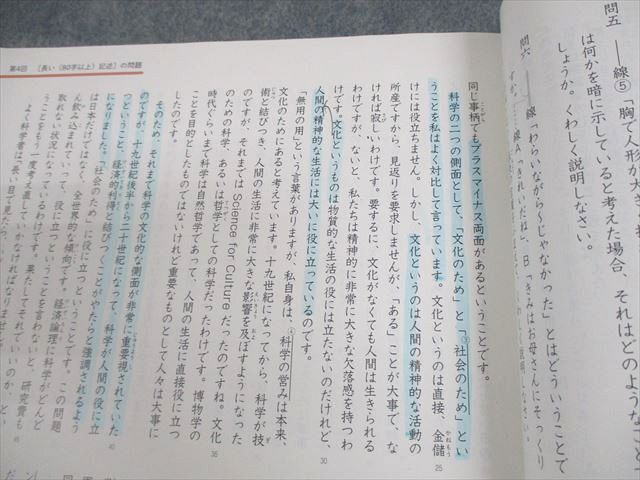 問五 ――線⑤「胸で人形が
は何かを暗に示していると考えた場合、それはどのようなこと
しょうか。くわしく説明しなさい。
問六 ――線「わらいながら〜じゃなかった」とはどういうことで
第4回 〔長い(80字以上)記述〕の問題
同じ事柄でもプラスマイナス両面があるということです。
科学の二つの側面として、「文化のため」と「③社会のため」とい
うことを私はよく対比して言っています。文化というのは直接、金儲
けには役立ちません。しかし、文化というのは人間の精神的な活動の
所産ですから、見返りを要求しませんが、「ある」ことが大事で、な
ければ寂しいわけです。要するに、文化がなくても人間は生きられる
わけですが、ないと、私たちは精神的に非常に大きな欠落感を持つわ
けです。文化というものは物質的な生活の役には立たないのだけれど、
人間の精神的な生活には大いに役に立っているのです。
「無用の用」という言葉がありますが、私自身は、④科学の営みは本来、
文化のためにあると考えています。十九世紀になってから、科学が技
術と結びつき、人間の生活に非常に大きな影響を及ぼすようになった
のですが、それまでは Science for Culture だったのですね。文化
のための科学、あるいは哲学としての科学だったわけです。博物学の
時代ぐらいまで科学は自然哲学であって、人間の生活に直接役に立つ
ことを目的としたものではないけれど重要なものとして人々は大事に
したのです。
そのため、それまで科学の文化的な側面が非常に重要視されていた
のですが、十九世紀後半から二十世紀になって、科学が人間の役に立
つということ、経済的利得と結びつくことがやたらと強調されるよう
になりました。「社会のため」に役に立つということです。この問題
は日本だけではなく、全世界的な傾向です。経済論理に科学がどんど
ん飲み込まれていって、役に立つということを言わないと、研究費も
取れない状況になっているわけです。果たしてそれでいいのか、とい
うことをもう一度考え直していかなければなりません
よく科学者は「長い目で見たら
25
30
35
40
45